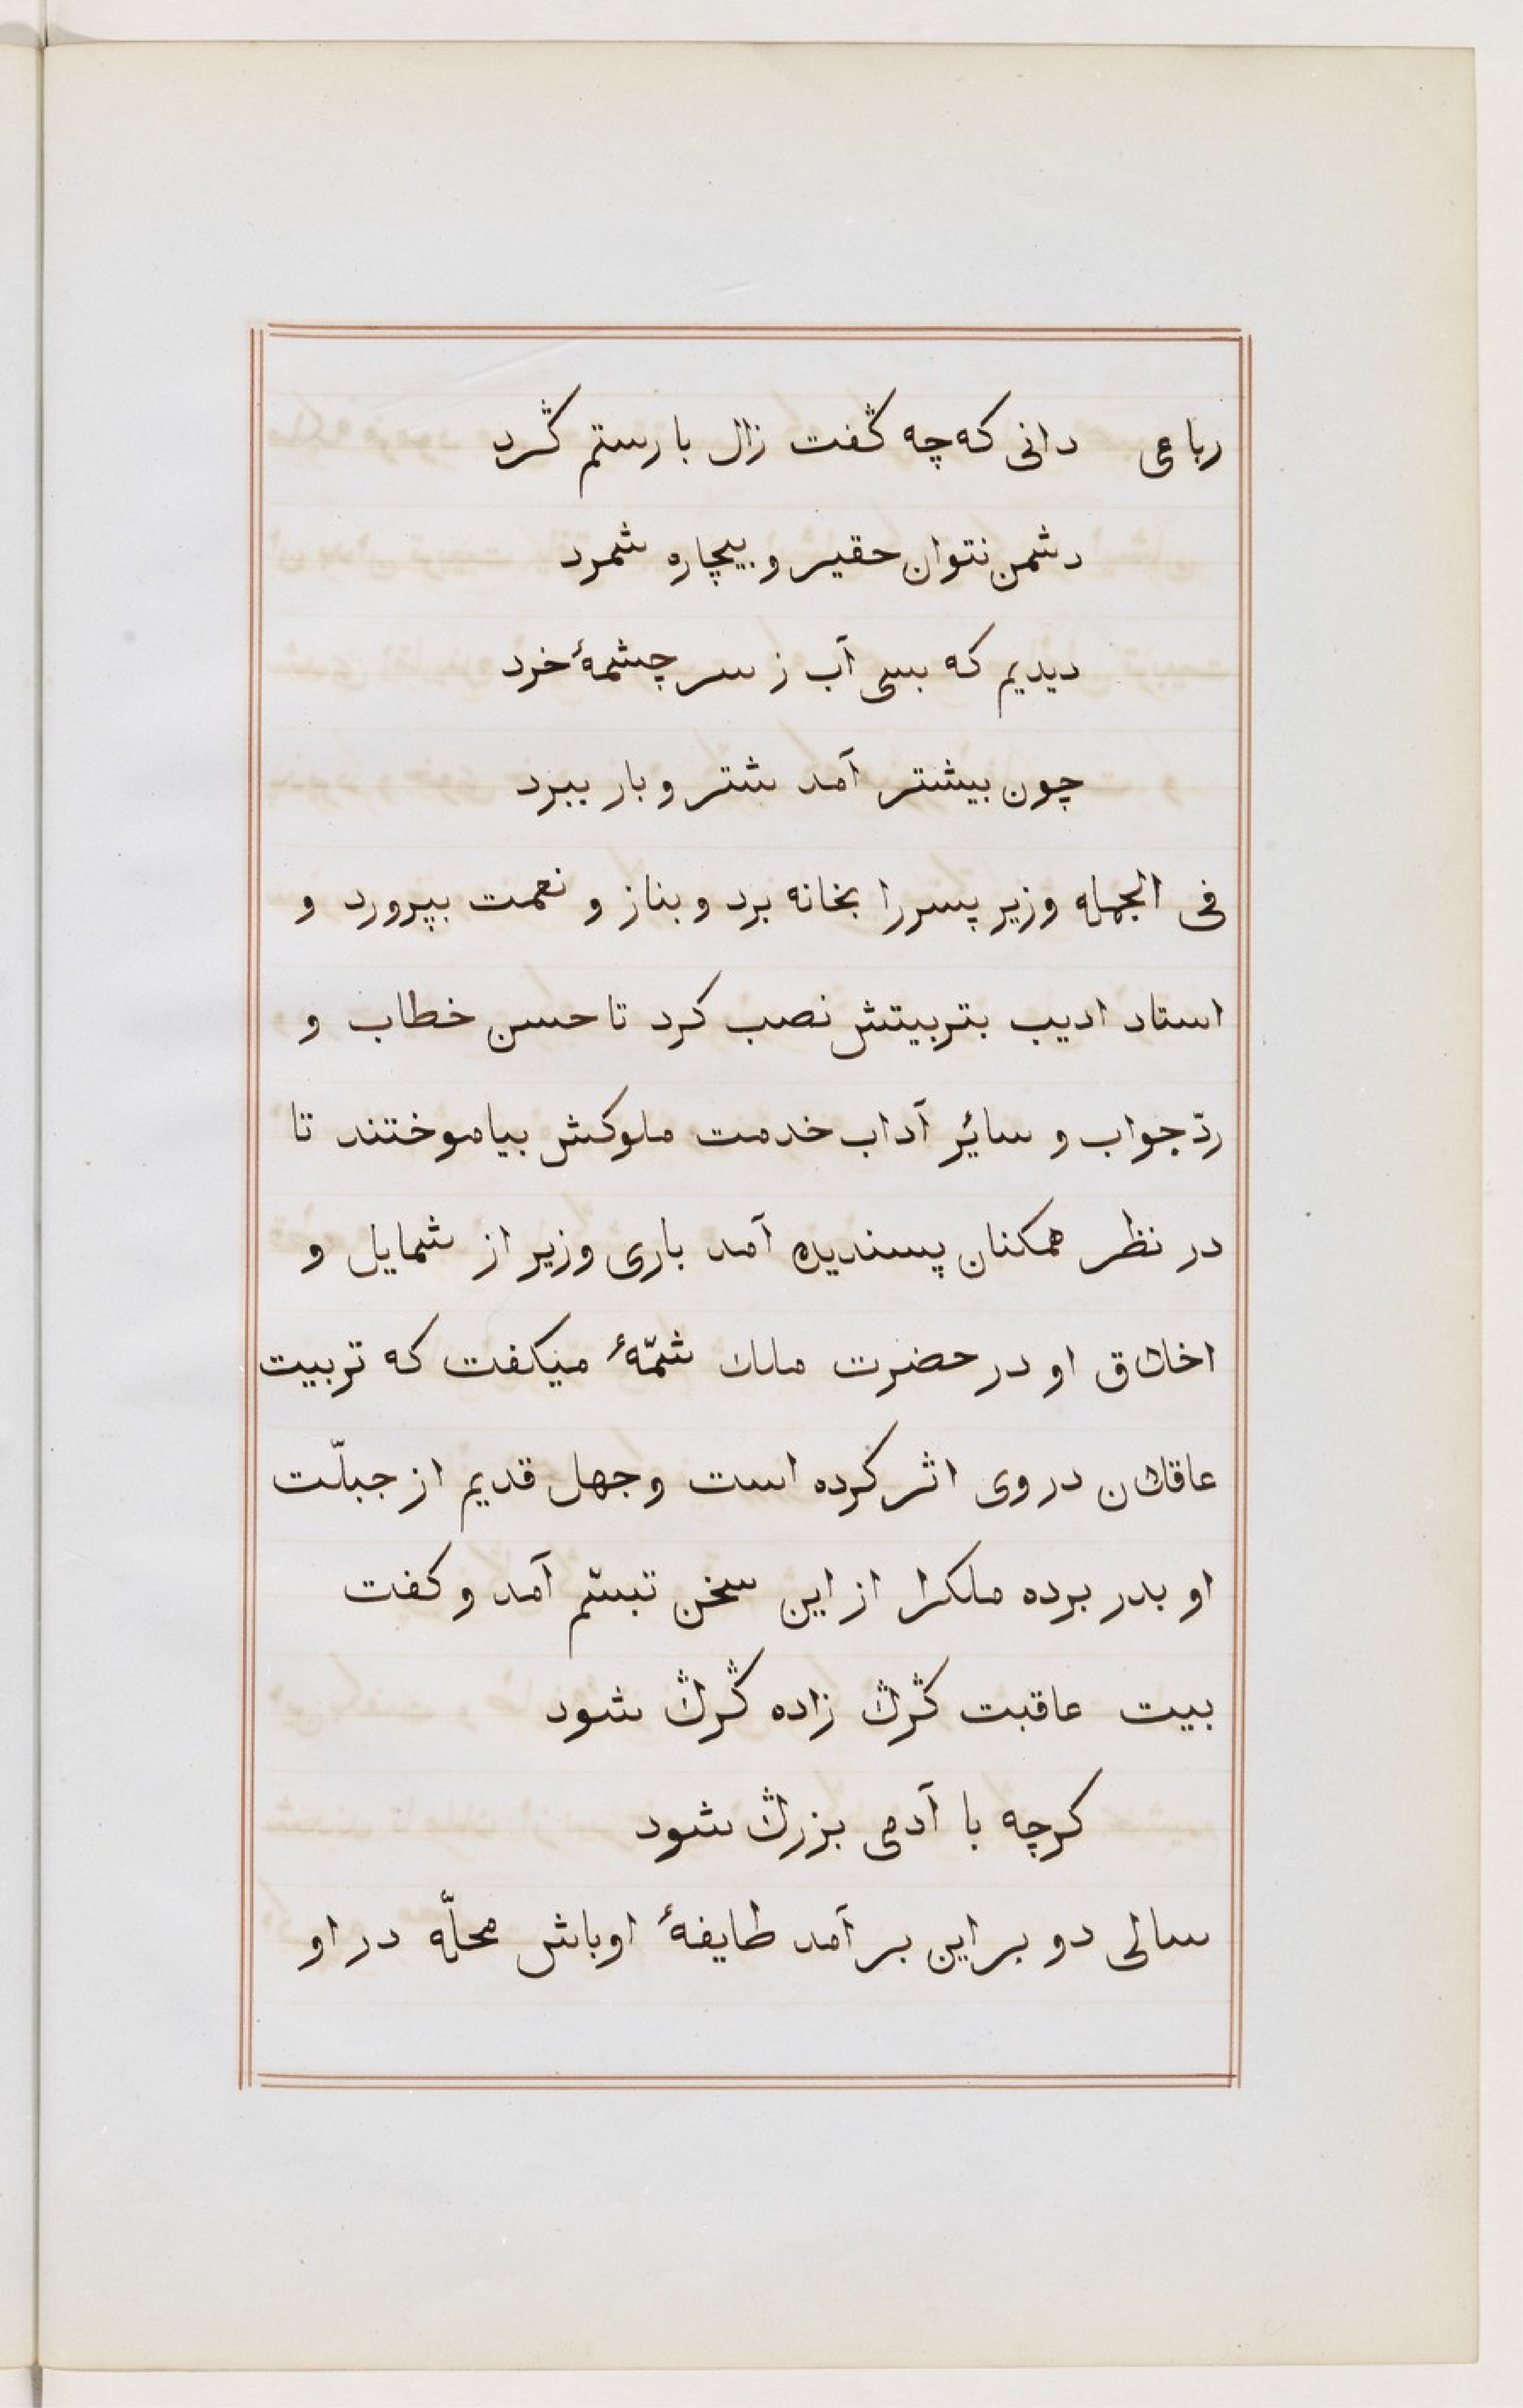 رباعی دانی که چه گفت زال با رستم گرد
دشمن نتوان حقیر و بیچاره شمرد
دیدیم که بسی آب ز سر چشمهٔ خرد
چون بیشتر آمد شتر و بار ببرد
فی الجمله وزیر پسررا بخانه برد و بناز و نعمت بپرورد و
استاد ادیب بتربیتش نصب کرد تا حسن خطاب و
ردّ جواب و سائر آداب خدمت ملوکش بیاموختند تا
در نظر همکنان پسندیده آمد باری وزیر از شمایل و
اخلاق او در حضرت ملك شمّهٔ میکفت که تربیت
عاقلان در وی اثر کرده است و جهل قدیم از جبلّت
او بدر برده ملکرا از این سخن تبسّم آمد و کفت
بیت عاقبت گرگ زاده گرگ شود
کرچه با آدمی بزرگ شود
سالی دو بر این بر آمد طایفهٔ اوباش محلّه در او